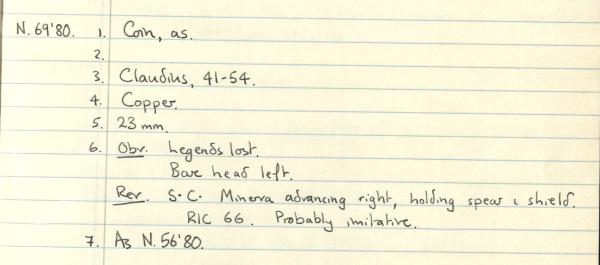 N.69'80. 1. Coin, as.
2.
3. Claudius, 41-54.
4. Copper.
5. 23 mm.
6. Obv. Legends lost.
Bare head left.
Rev. S.C. Minerva advancing right, holding spear & shield.
RIC 66. Probably imitative.
7. As N.56'80.